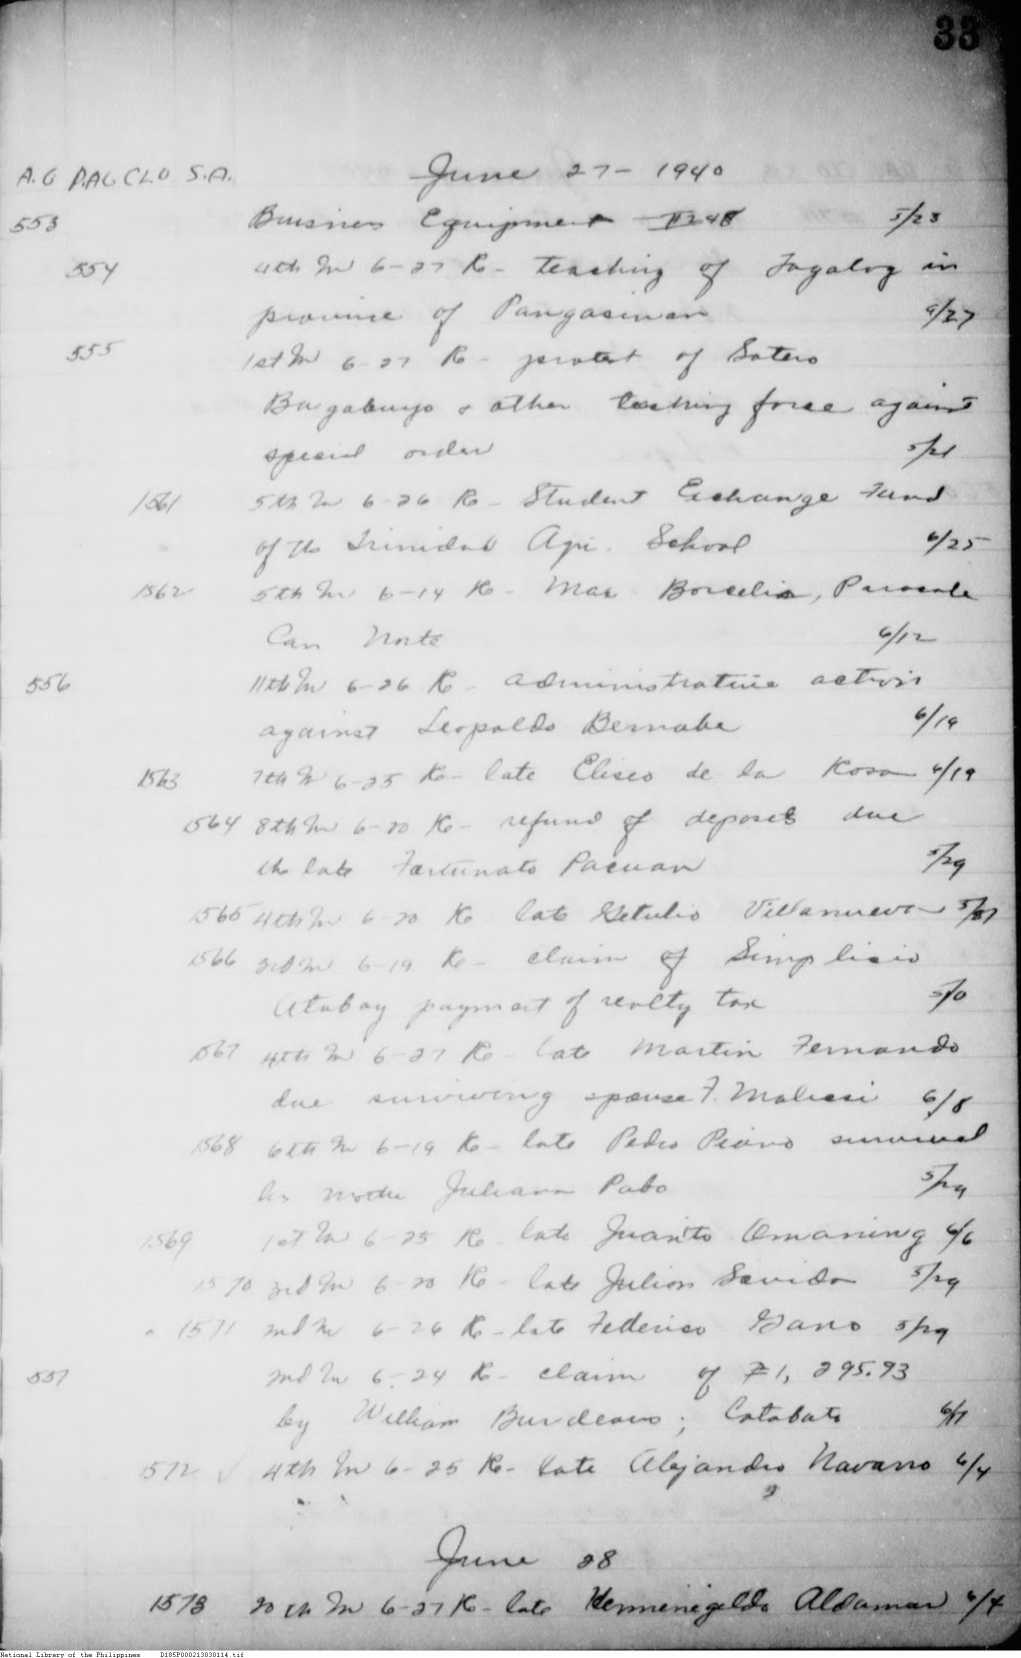 33
A.G P.AG CLD S.A. June 27 - 1940
553 Business Equipment 5/23
554 4th In 6-27 R - teaching of Tagalog in
province of Pangasinan 9/27
555 1st In 6-27 R - protest of Sotero
Bugabuyo & other teaching force against
special order 5/21
1561 5th In 6-26 R - Student Exchange Fund
of the Trinidad Agri. School 6/25
1562 5th In 6-14 R - Mar Borcelis, Paracale
Cam Norte 6/12
556 11th In 6-26 R - administrative action
against Leopoldo Bernabe 6/19
1563 7th In 6-25 R - late Eliseo de la Rosa 6/19
1564 8th In 6-20 R - refund of deposits due
the late Fortunato Pacuan 5/29
1565 4th In 6-20 R late Getulio Villanueva 5/31
1566 3rd In 6-19 R - claim of Simplicio
Atabay payment of realty tax
1567 4th In 6-27 R - late Martin Fernando
due surviving spouse F. Malicsi 6/8
1568 6th In 6-19 R - late Pedro survived
by mother Juliana Pabo 5/29
1569 1st In 6-25 R late Juanito Omaning 6/6
1570 3rd In 6-20 R - late Julian Savida 5/29
1571 2nd In 6-26 R - late Federico Gano 5/29
557 2nd In 6-24 R - claim of ₱1, 295.93
by William Burdeous; Cotabato 6/17
1572 ✓ 4th In 6-25 R - late Alejandro Navarro 6/4
June 28
1573 20th In 6-27 R - late Hermenegildo Aldaman 6/4
National Library of the Philippines D185P000213030114.tif